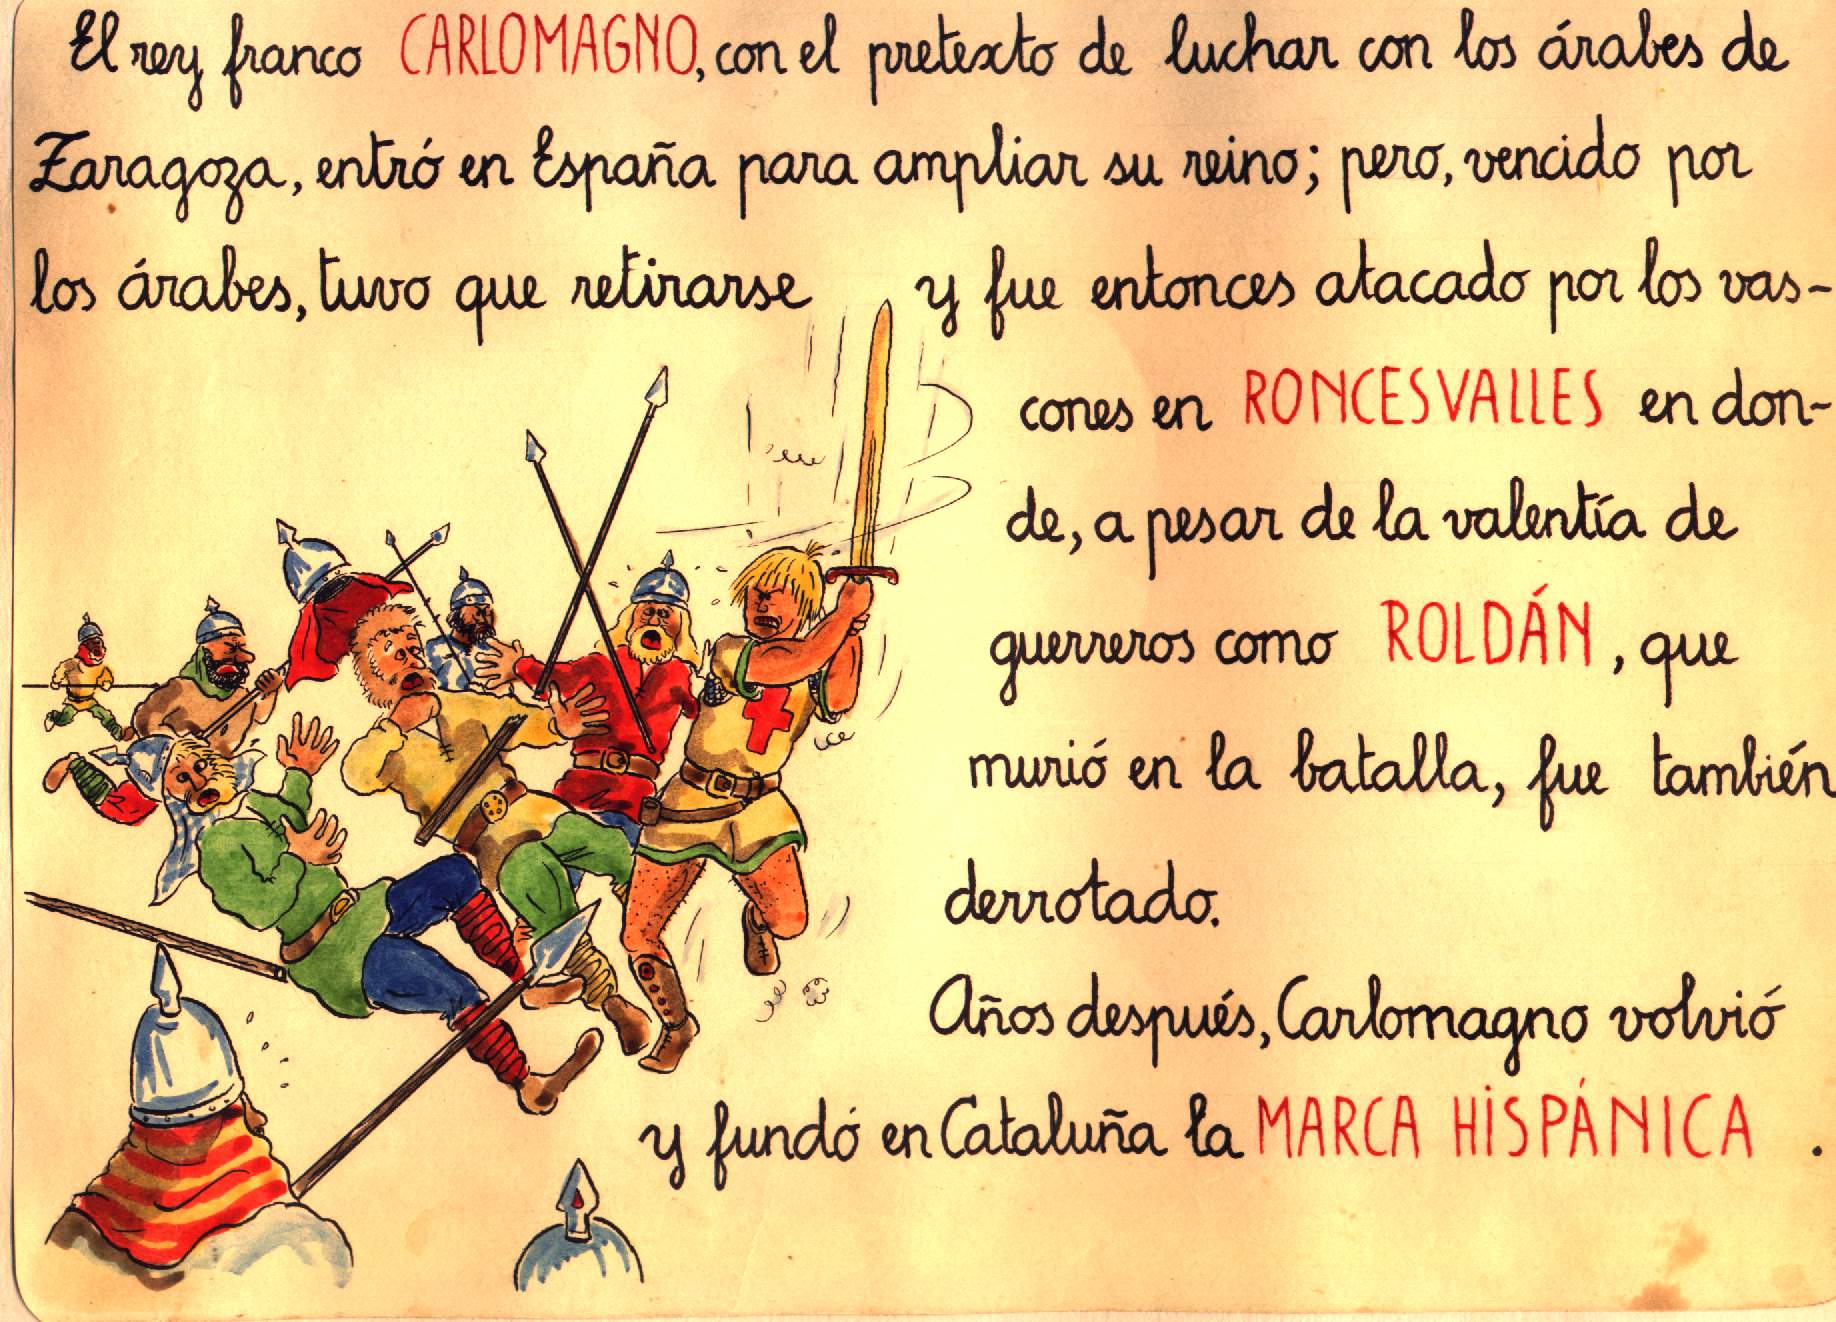 El rey franco CARLOMAGNO, con el pretexto de luchar con los árabes de
Zaragoza, entró en España para ampliar su reino; pero, vencido por
los árabes, tuvo que retirarse y fue entonces atacado por los vas-
cones en RONCESVALLES en don-
de, a pesar de la valentía de
guerreros como ROLDÁN, que
murió en la batalla, fue también
derrotado.
Años después, Carlomagno volvió
y fundó en Cataluña la MARCA HISPÁNICA .